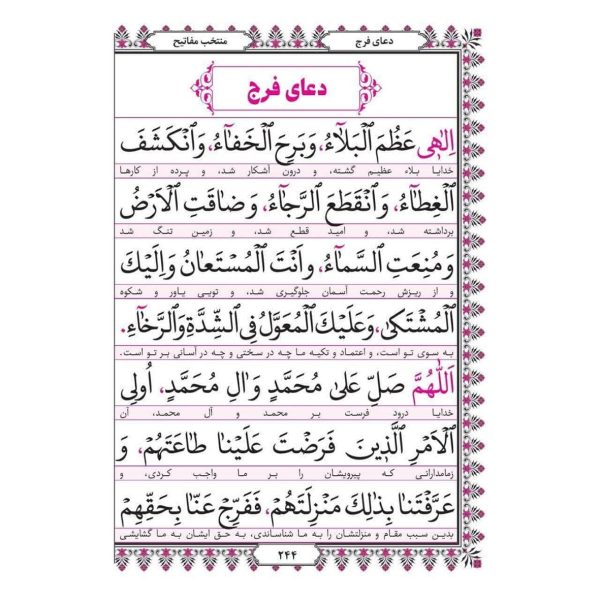 دعای فرج
منتخب مفاتیح
دعای فرج
اِلٰهی عَظُمَ الْبَلاۤءُ، وَبَرِحَ الْخَفاۤءُ، وَانْكَشَفَ
خدایا بلاء عظیم گشته، و درون آشکار شد، و پرده از کارها
الْغِطاۤءُ، وَانْقَطَعَ الرَّجاۤءُ، وَ ضاقَتِ الْاَرْضُ
برداشته شد، و امید قطع شد، و زمین تنگ شد
وَ مُنِعَتِ السَّماۤءُ، وَ اَنْتَ الْمُسْتَعانُ وَ اِلَيْكَ
و از ریزش رحمت آسمان جلوگیری شد، و تویی یاور و شکوه
الْمُشْتَكىٰ، وَ عَلَيْكَ الْمُعَوَّلُ فِی الشِّدَّةِ وَ الرَّخاۤءِ.
به سوی تو است، و اعتماد و تکیه ما چه در سختی و چه در آسانی بر تو است.
اَللّٰهُمَّ صَلِّ عَلىٰ مُحَمَّدٍ وَ اٰلِ مُحَمَّدٍ، اُولِی
خدایا درود فرست بر محمد و آل محمد، آن
الْاَمْرِ الَّذینَ فَرَضْتَ عَلَيْنا طاعَتَهُمْ، وَ
زمامدارانی که پیرویشان را بر ما واجب کردی، و
عَرَّفْتَنا بِذٰلِكَ مَنْزِلَتَهُمْ، فَفَرِّجْ عَنّا بِحَقِّهِمْ
بدین سبب مقام و منزلتشان را به ما شناساندی، به حق ایشان به ما گشایشی
۲۴۴